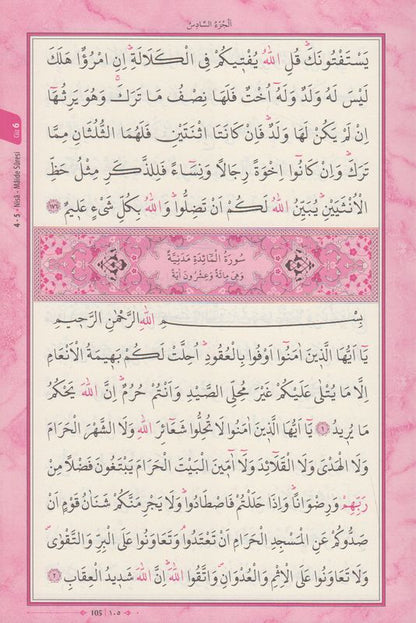 اَلْجُزْءُ السَّادِسُ
يَسْتَفْتُونَكَۜ قُلِ اللّٰهُ يُفْت۪يكُمْ فِي الْكَلَالَةِۜ اِنِ امْرُؤٌا هَلَكَ
لَيْسَ لَهُ وَلَدٌ وَلَهُٓ اُخْتٌ فَلَهَا نِصْفُ مَا تَرَكَۚ وَهُوَ يَرِثُهَٓا
اِنْ لَمْ يَكُنْ لَهَا وَلَدٌۜ فَاِنْ كَانَتَا اثْنَتَيْنِ فَلَهُمَا الثُّلُثَانِ مِمَّا
تَرَكَۜ وَاِنْ كَانُٓوا اِخْوَةً رِجَالًا وَنِسَٓاءً فَلِلذَّكَرِ مِثْلُ حَظِّ
الْاُنْثَيَيْنِۜ يُبَيِّنُ اللّٰهُ لَكُمْ اَنْ تَضِلُّواۜ وَاللّٰهُ بِكُلِّ شَيْءٍ عَل۪يمٌ ﴿١٧٦﴾
سُورَةُ الْمَائِدَةِ مَدَنِيَّةٌ
وَهِيَ مِائَةٌ وَعِشْرُونَ اٰيَةً
بِسْــــــمِ اللّٰهِ الرَّحْمٰنِ الرَّح۪يمِ
يَٓا اَيُّهَا الَّذ۪ينَ اٰمَنُٓوا اَوْفُوا بِالْعُقُودِۜ اُحِلَّتْ لَكُمْ بَه۪يمَةُ الْاَنْعَامِ
اِلَّا مَا يُتْلٰى عَلَيْكُمْ غَيْرَ مُحِلِّي الصَّيْدِ وَاَنْتُمْ حُرُمٌۜ اِنَّ اللّٰهَ يَحْكُمُ
مَا يُر۪يدُ ﴿١﴾ يَٓا اَيُّهَا الَّذ۪ينَ اٰمَنُوا لَا تُحِلُّوا شَعَٓائِرَ اللّٰهِ وَلَا الشَّهْرَ الْحَرَامَ
وَلَا الْهَدْيَ وَلَا الْقَلَٓائِدَ وَلَٓا آٰمّ۪ينَ الْبَيْتَ الْحَرَامَ يَبْتَغُونَ فَضْلًا مِنْ
رَبِّهِمْ وَرِضْوَانًاۜ وَاِذَا حَلَلْتُمْ فَاصْطَادُواۜ وَلَا يَجْرِمَنَّكُمْ شَنَاٰنُ قَوْمٍ اَنْ
صَدُّوكُمْ عَنِ الْمَسْجِدِ الْحَرَامِ اَنْ تَعْتَدُواۢ وَتَعَاوَنُوا عَلَى الْبِرِّ وَالتَّقْوٰىۖ
وَلَا تَعَاوَنُوا عَلَى الْاِثْمِ وَالْعُدْوَانِۖ وَاتَّقُوا اللّٰهَۜ اِنَّ اللّٰهَ شَد۪يدُ الْعِقَابِ ﴿٢﴾
105 | ١٠٥
4 - 5 - Nisâ - Mâide Sûresi Cüz 6